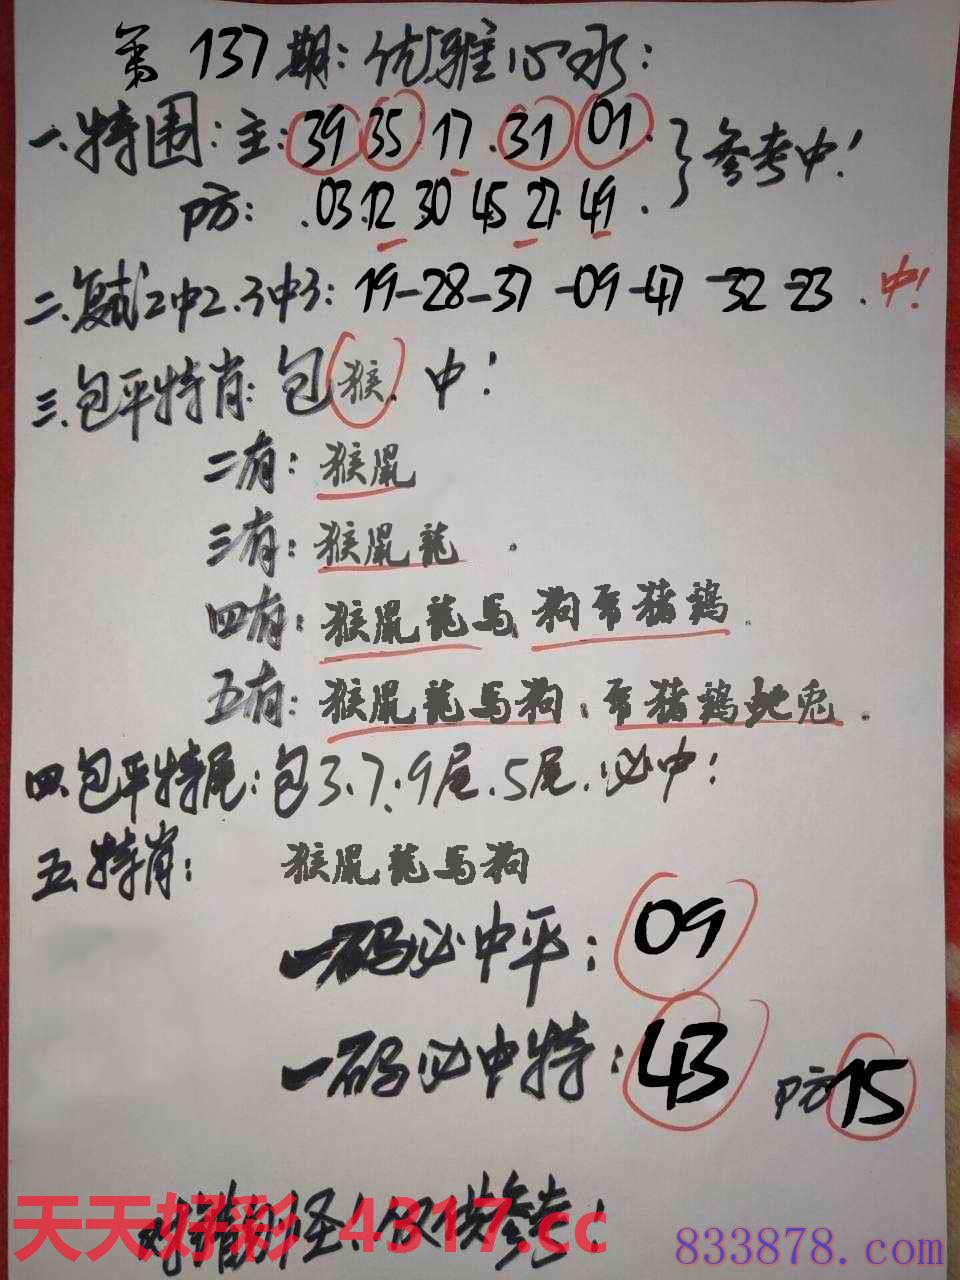 第137期:优雅心水:
一.特围:主:39 35.17.31 01.
参考中!
防:.03.12 30 45 27.49.
二.复式2中2.3中3:19-28-37-09-47-32-23.中!
三.包平特肖:包猴.中!
二有:猴鼠
三有:猴鼠龍.
四有:猴鼠龍马.狗 猪鸡.
五有:猴鼠龍马狗. 猪鸡蛇兔.
四.包平特尾:包3.7.9尾.5尾.必中!
五.特肖:猴鼠龍马狗
一码必中平:09
一码必中特:43 防15
对错别怪!仅供参考!
天天好彩 4317.cc
833878.com